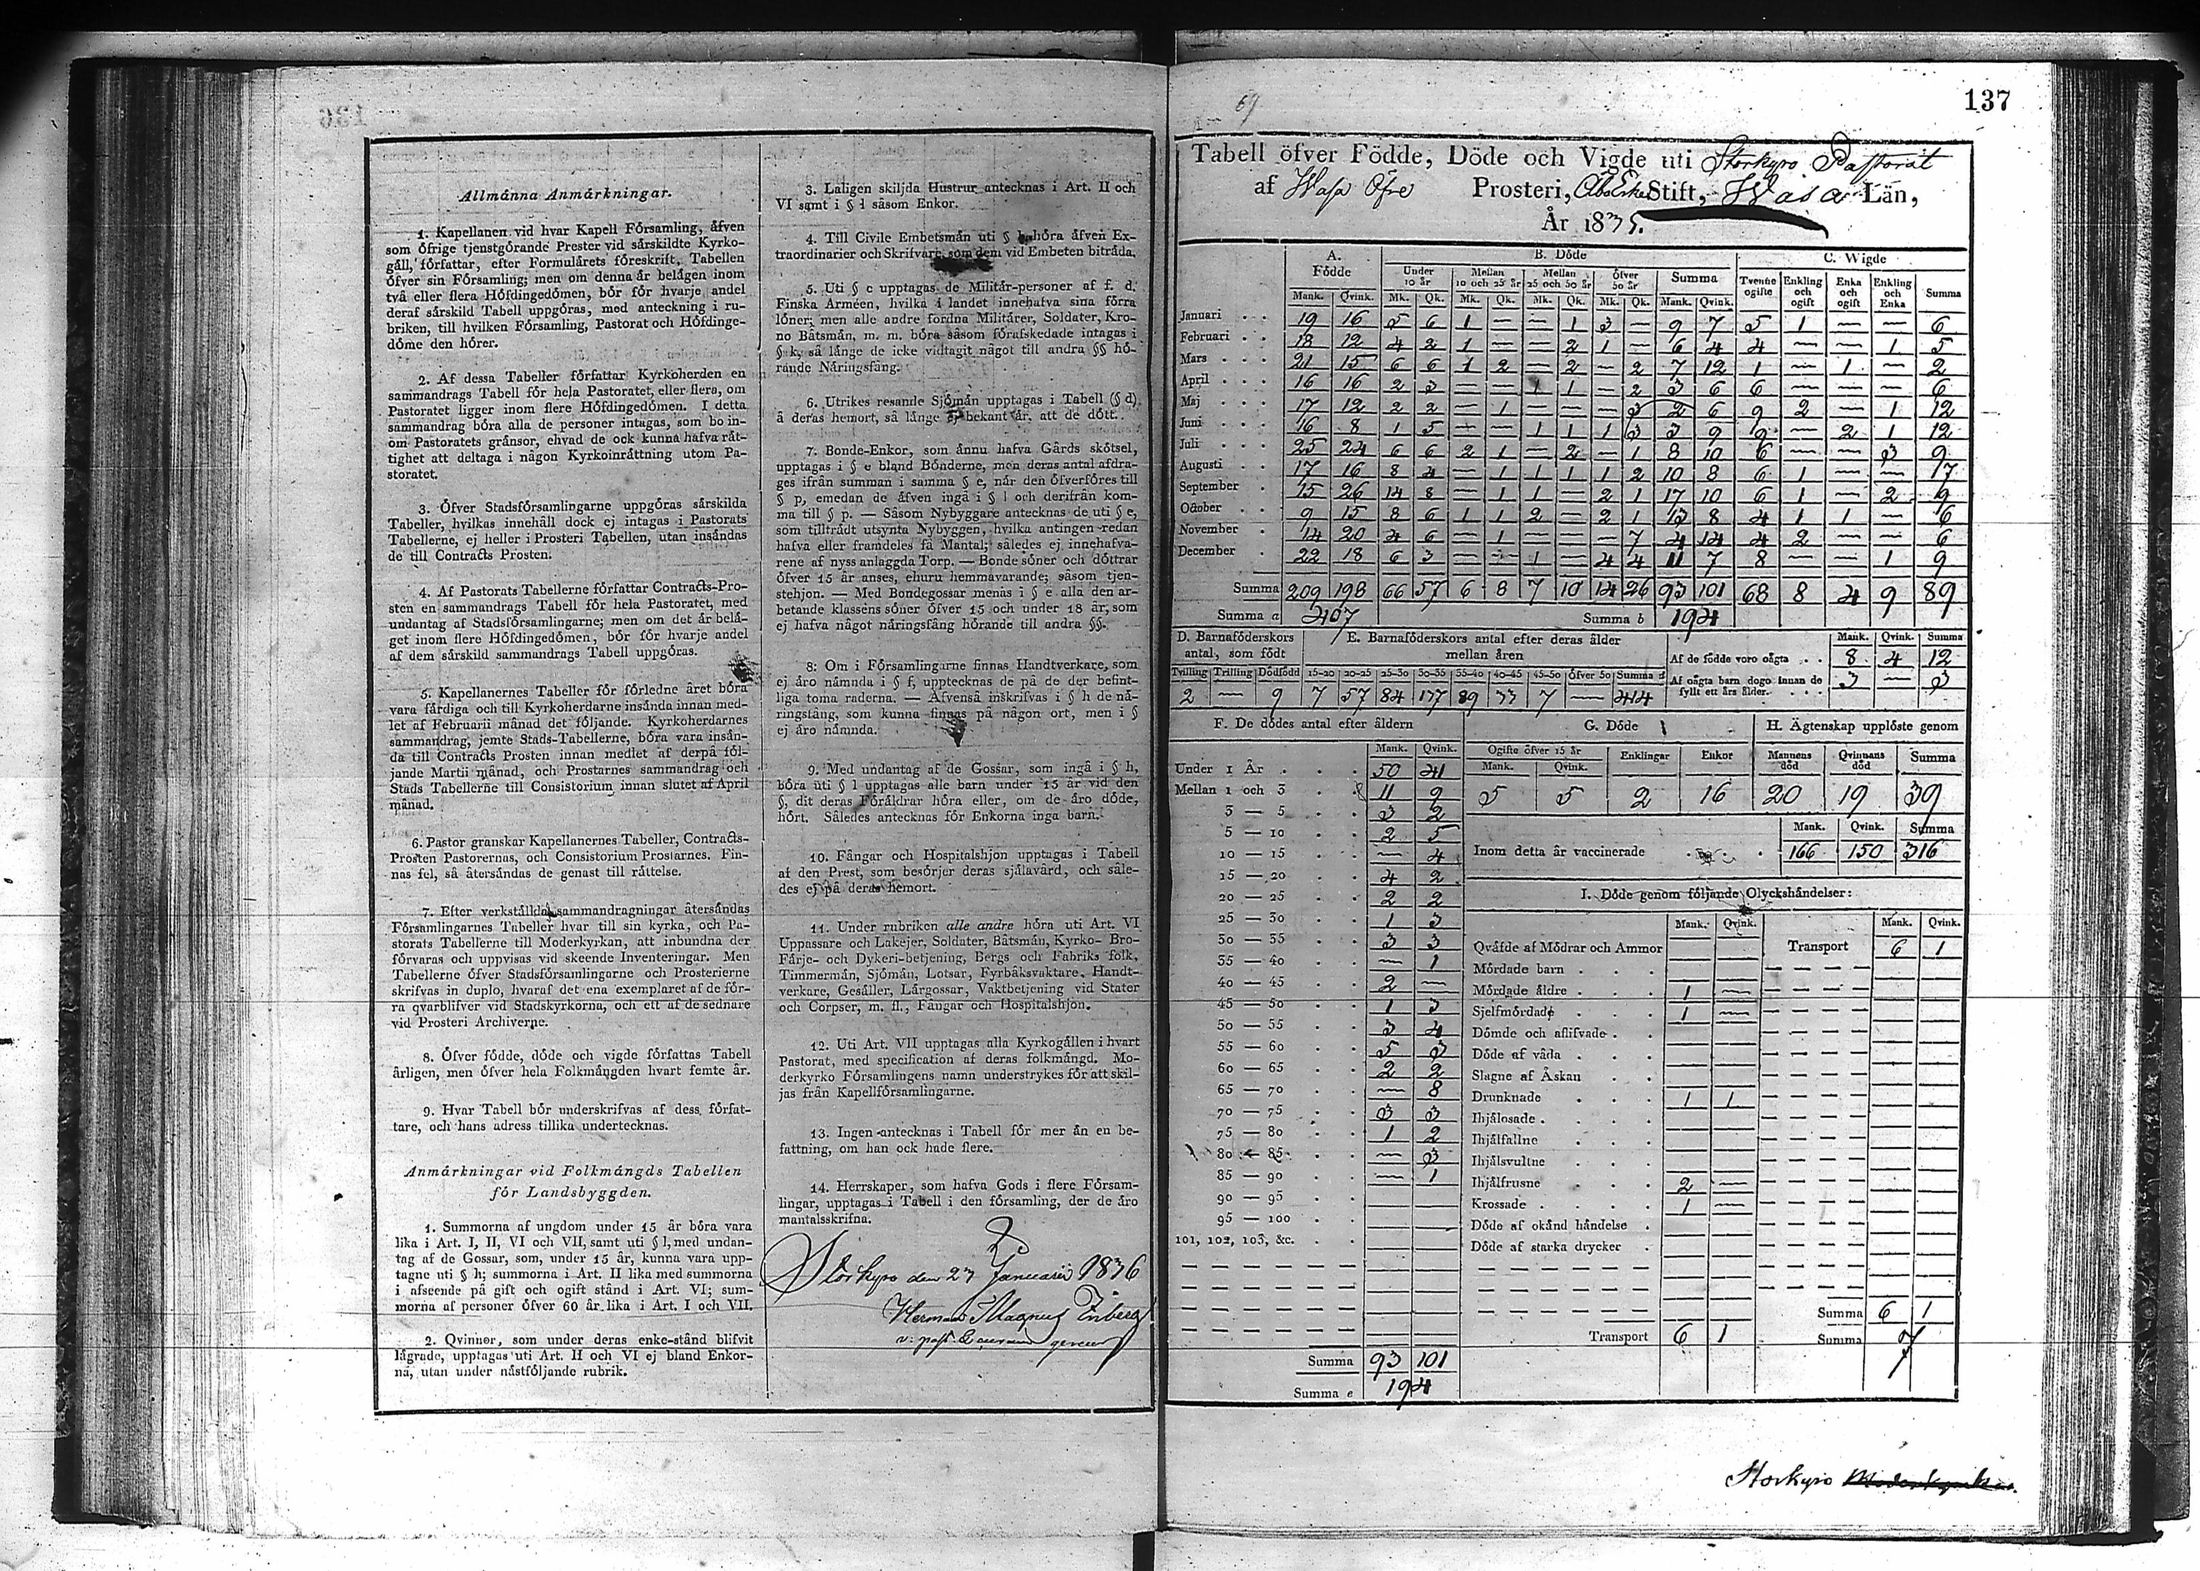 Allmänna Anmärkningar.
1. Kapellanen vid hvar Kapell Församling, äfven
som öfrige tjenstgörande Prester vid särskildte Kyrko-
gäll, författar, efter Formulärets föreskrift, Tabellen
öfver sin Församling; men om denna är belägen inom
två eller flera Höfdingedömen, bör för hvarje andel
deraf särskild Tabell uppgöras, med anteckning i ru-
briken, till hvilken Församling, Pastorat och Höfdinge-
döme den hörer.
2. Af dessa Tabeller författar Kyrkoherden en
sammandrags Tabell för hela Pastoratet, eller flera, om
Pastoratet ligger inom flere Höfdingedömen. I detta
sammandrag böra alla de personer intagas, som bo in-
om Pastoratets gränsor, ehvad de ock kunna hafva rät-
tighet att deltaga i någon Kyrkoinrättning utom Pa-
storatet.
3. Öfver Stadsförsamlingarne uppgöras särskilda
Tabeller, hvilkas innehåll dock ej intagas i Pastorats
Tabellerne, ej heller i Prosteri Tabellen, utan insändas
de till Contracts Prosten.
4. Af Pastorats Tabellerne författar Contracts-Pro-
sten en sammandrags Tabell för hela Pastoratet, med
undantag af Stadsförsamlingarne; men om det är belä-
get inom flere Höfdingedömen, bör för hvarje andel
af dem särskild sammandrags Tabell uppgöras.
5. Kapellanernes Tabeller för förledne året böra
vara färdiga och till Kyrkoherdarne insända innan med-
let af Februarii månad det följande. Kyrkoherdarnes
sammandrag, jemte Stads-Tabellerne, böra vara insän-
da till Contracts Prosten innan medlet af derpå föl-
jande Martii månad, och Prostarnes sammandrag och
Stads Tabellerne till Consistorium innan slutet af April
månad.
6. Pastor granskar Kapellanernes Tabeller, Contracts-
Prosten Pastorernas, och Consistorium Prostarnes. Fin-
nas fel, så återsändas de genast till rättelse.
7. Efter verkställda sammandragningar återsändas
Församlingarnes Tabeller hvar till sin kyrka, och Pa-
storats Tabellerne till Moderkyrkan, att inbundna der
förvaras och uppvisas vid skeende Inventeringar. Men
Tabellerne öfver Stadsförsamlingarne och Prosterierne
skrifvas in duplo, hvaraf det ena exemplaret af de för-
ra qvarblifver vid Stadskyrkorna, och ett af de sednare
vid Prosteri Archiverne.
8. Öfver födde, döde och vigde författas Tabell
årligen, men öfver hela Folkmängden hvart femte år.
9. Hvar Tabell bör underskrifvas af dess förfat-
tare, och hans adress tillika undertecknas.
Anmärkningar vid Folkmängds Tabellen
för Landsbyggden.
1. Summorna af ungdom under 15 år böra vara
lika i Art. I, II, VI och VII, samt uti § l, med undan-
tag af de Gossar, som, under 15 år, kunna vara upp-
tagne uti § h; summorna i Art. II lika med summorna
i afseende på gift och ogift stånd i Art. VI; sum-
morna af personer öfver 60 år lika i Art. I och VII.
2. Qvinnor, som under deras enke-stånd blifvit
lägrade, upptagas uti Art. II och VI ej bland Enkor-
na, utan under nästföljande rubrik.
3. Laligen skiljda Hustrur antecknas i Art. II och
VI samt i § i såsom Enkor.
4. Till Civile Embetsmän uti § b höra äfven Ex-
traordinarier och Skrifvare, som dem vid Embeten biträda.
5. Uti § c upptagas de Militär-personer af f. d.
Finska Arméen, hvilka i landet innehafva sina förra
löner; men alle andre fordna Militärer, Soldater, Kro-
no Båtsmän, m. m. böra såsom förafskedade intagas i
§ k, så länge de icke vidtagit något till andra §§ hö-
rande Näringsfång.
6. Utrikes resande Sjömän upptagas i Tabell (§ d)
å deras hemort, så länge ej bekant är, att de dött.
7. Bonde-Enkor, som ännu hafva Gårds skötsel,
upptagas i § e bland Bönderne, men deras antal afdra-
ges ifrån summan i samma § e, når den öfverföres till
§ p, emedan de äfven ingå i § l och derifrån kom-
ma till § p. — Såsom Nybyggare antecknas de uti § e,
som tillträdt utsynta Nybyggen, hvilka antingen redan
hafva eller framdeles få Mantal; således ej innehafva-
rene af nyss anlaggda Torp. — Bonde söner och döttrar
öfver 15 år anses, ehuru hemmavarande, såsom tjen-
stehjon. — Med Bondegossar menas i § e alla den ar-
betande klassens söner öfver 15 och under 18 år, som
ej hafva något näringsfång hörande till andra §§.
8: Om i Församlingarne finnas Handtverkare, som
ej äro nämnda i § f, upptecknas de på de der befint-
liga toma raderna. — Äfvenså inskrifvas i § h de nä-
ringsfång, som kunna finnas på någon ort, men i §
ej äro nämnda.
9. Med undantag af de Gossar, som ingå i § h,
böra uti § l upptagas alle barn under 15 år vid den
§, dit deras Föräldrar höra eller, om de äro döde,
hört. Således antecknas för Enkorna inga barn.
10. Fångar och Hospitalshjon upptagas i Tabell
af den Prest, som besörjer deras själavård, och såle-
des ej på deras hemort.
11. Under rubriken alle andre höra uti Art. VI
Uppassare och Lakejer, Soldater, Båtsmän, Kyrko- Bro-
Färje- och Dykeri-betjening, Bergs och Fabriks folk,
Timmermän, Sjömän, Lotsar, Fyrbåksvaktare, Handt-
verkare, Gesäller, Lärgossar, Vaktbetjening vid Stater
och Corpser, m. fl., Fångar och Hospitalshjon.
12. Uti Art. VII upptagas alla Kyrkogällen i hvart
Pastorat, med specification af deras folkmängd. Mo-
derkyrko Församlingens namn understrykes för att skil-
jas från Kapellförsamlingarne.
13. Ingen antecknas i Tabell för mer än en be-
fattning, om han ock hade flere.
14. Herrskaper, som hafva Gods i flere Försam-
lingar, upptagas i Tabell i den församling, der de äro
mantalsskrifna.
Storkyro den 23 Januarii 1836
Herman Magnus
v: past:
69
137
Tabell öfver Födde, Döde och Vigde uti Storkyro Pastorat
af Wasa Öfre Prosteri, Åbo Erke Stift, Wasa Län,
År 1835.
A. Födde B. Döde C. Wigde
Under 10 år Mellan 10 och 25 år Mellan 25 och 50 år öfver 50 år Summa Tvenne ogifte Enkling och ogift Enka och ogift Enkling och Enka Summa
Mank. Qvink. Mk. Qk. Mk. Qk. Mk. Qk. Mk. Qk. Mank. Qvink.
Januari 19 16 5 6 1 — — 1 3 — 9 7 5 1 — — 6
Februari 18 12 4 2 1 — — 2 1 — 6 4 4 — — 1 5
Mars 21 15 6 6 1 2 — 2 — 2 7 12 1 — 1 — 2
April 16 16 2 3 — — 1 1 — 2 3 6 6 — — — 6
Maj 17 12 2 2 — 1 — — — 3 2 6 9 2 — 1 12
Juni 16 8 1 5 — — 1 1 1 3 3 9 9 — 2 1 12
Juli 25 24 6 6 2 1 — 2 — 1 8 10 6 — — 3 9
Augusti 17 16 8 4 — 1 1 1 1 2 10 8 6 1 — — 17
September 15 26 14 8 — 1 1 — 2 1 17 10 6 1 — 2 9
October 9 15 8 6 1 1 2 — 2 1 13 8 4 1 1 — 6
November 14 20 4 6 — 1 — — — 7 4 14 4 2 — — 6
December 22 18 6 3 — — 1 — 4 4 11 7 8 — — 1 9
Summa 209 198 66 57 6 8 7 10 14 26 93 101 68 8 4 9 89
Summa a 407 Summa b 194
D. Barnaföderskors antal, som födt
Tvilling Trilling Dödfödd
2 — 9
E. Barnaföderskors antal efter deras ålder mellan åren
15-20 20-25 25-30 30-35 35-40 40-45 45-50 öfver 50 Summa d
7 57 84 137 89 33 7 — 414
Mank. Qvink. Summa
Af de födde voro oägta 8 4 12
Af oägta barn dogo innan de fyllt ett års ålder 3 — 3
F. De dödes antal efter åldern
Mank. Qvink.
Under 1 År 50 41
Mellan 1 och 3 11 9
3 — 5 3 2
5 — 10 2 5
10 — 15 — 4
15 — 20 4 2
20 — 25 2 2
25 — 30 1 3
30 — 35 3 3
35 — 40 — 1
40 — 45 2 —
45 — 50 1 3
50 — 55 3 4
55 — 60 5 3
60 — 65 2 2
65 — 70 — 8
70 — 75 3 3
75 — 80 1 2
80 — 85 — 3
85 — 90 — 1
90 — 95
95 — 100
101, 102, 103, &c.
Summa 93 101
Summa e 194
G. Döde
Ogifte öfver 15 år Enklingar Enkor
Mank. Qvink.
5 5 2 16
H. Ägtenskap upplöste genom
Mannens död Qvinnans död Summa
20 19 39
Mank. Qvink. Summa
Inom detta år vaccinerade 166 150 316
I. Döde genom följande Olyckshändelser:
Mank. Qvink.
Qväfde af Mödrar och Ammor
Mördade barn
Mördade äldre 1 —
Sjelfmördade 1 —
Dömde och aflifvade
Döde af våda
Slagne af Åskan
Drunknade 1 1
Ihjälosade
Ihjälfallne
Ihjälsvultne
Ihjälfrusne 2 —
Krossade 1 —
Döde af okänd händelse
Döde af starka drycker
Transport 6 1
Mank. Qvink.
Transport 6 1
Summa 6 1
Summa 7
Storkyro